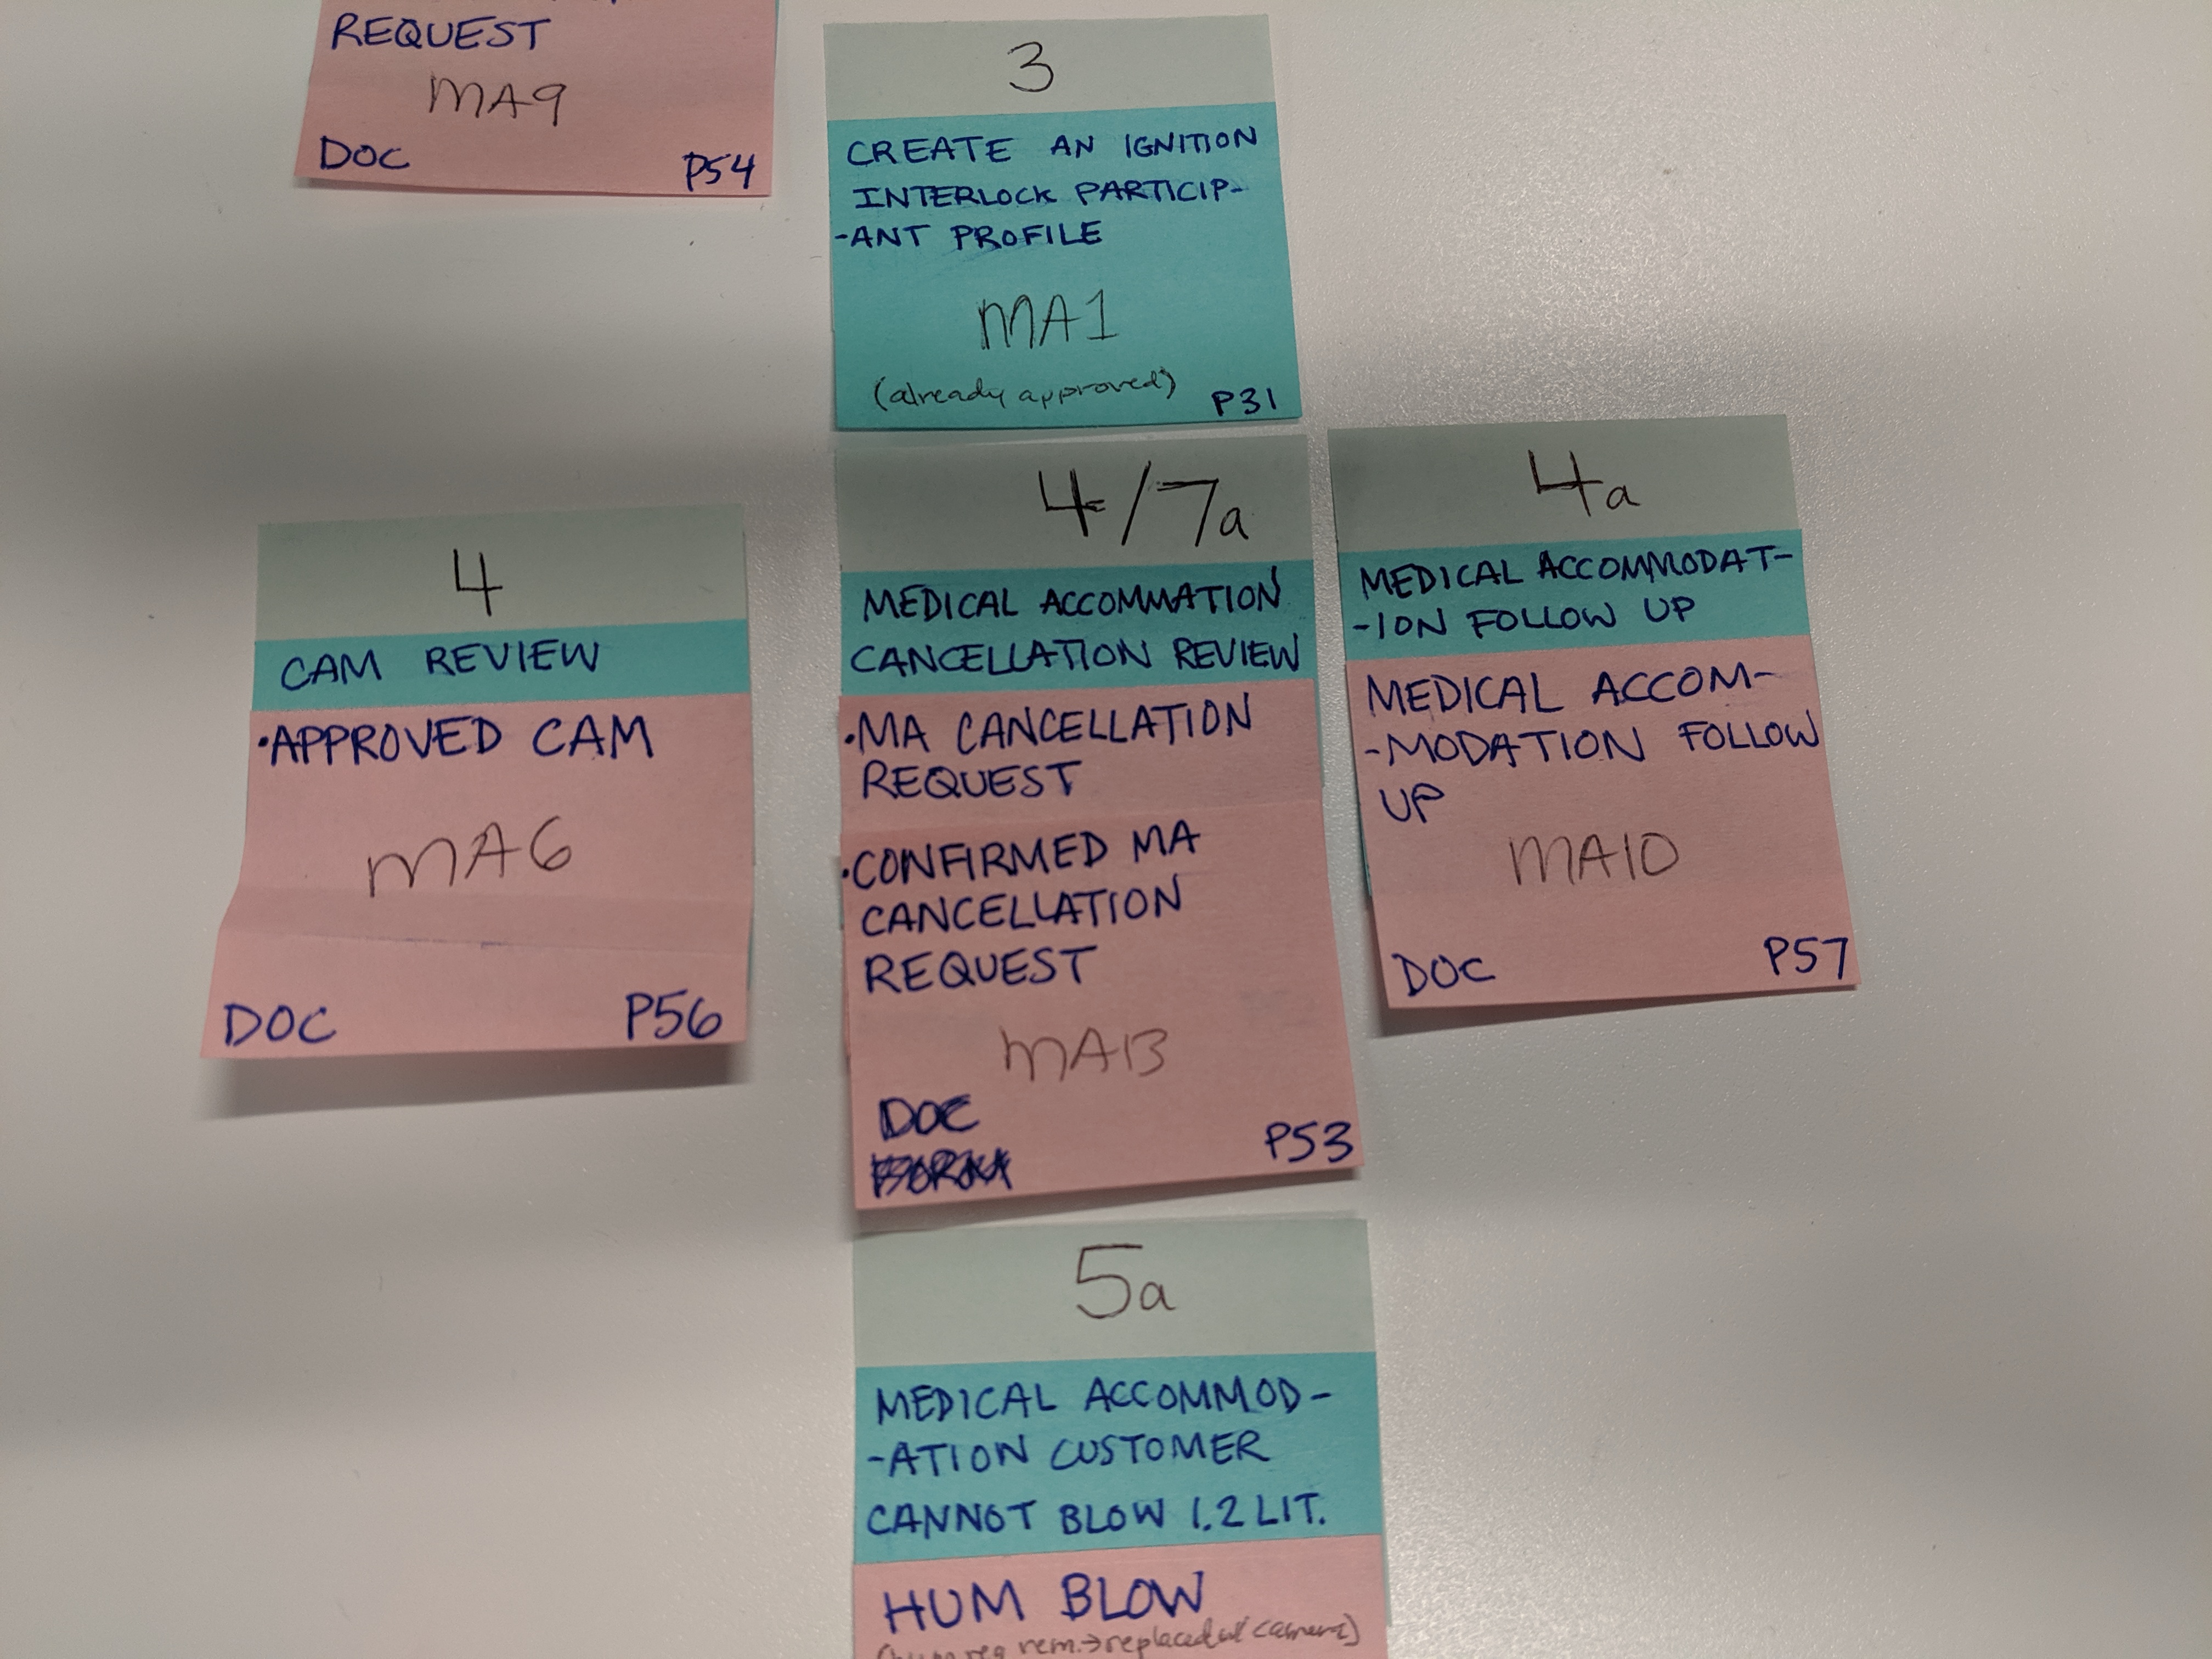 REQUEST
MA9
DOC P54
3
CREATE AN IGNITION
INTERLOCK PARTICIP-
-ANT PROFILE
MA1
(already approved) P31
4
CAM REVIEW
·APPROVED CAM
MA6
DOC P56
4/7a
MEDICAL ACCOMMATION
CANCELLATION REVIEW
·MA CANCELLATION
REQUEST
·CONFIRMED MA
CANCELLATION
REQUEST
MA13
DOC
P53
4a
MEDICAL ACCOMMODAT-
-ION FOLLOW UP
MEDICAL ACCOM-
-MODATION FOLLOW
UP
MA10
DOC P57
5a
MEDICAL ACCOMMOD-
-ATION CUSTOMER
CANNOT BLOW 1.2 LIT.
HUM BLOW
rem.→replaced w/ camera)